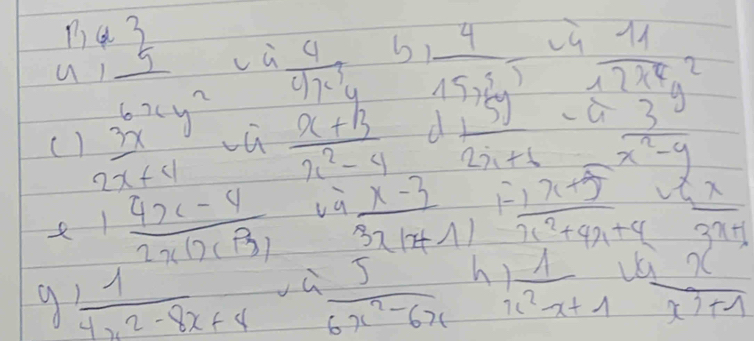 Bài 3
a, 5/6xy² và 4/9x³y b, 4/15x³y⁵ và 11/12x⁴y²
c) 3x/2x+4 và x+3/x²-4 d, 5/2x+6 và 3/x²-9
e, 4x-4/2x(x+3) và x-3/3x(x+1) f, x+5/x²+4x+4 và x/3x+
g, 1/4x²-8x+4 và 5/6x²-6x h, 1/x²-x+1 và x/x³+1